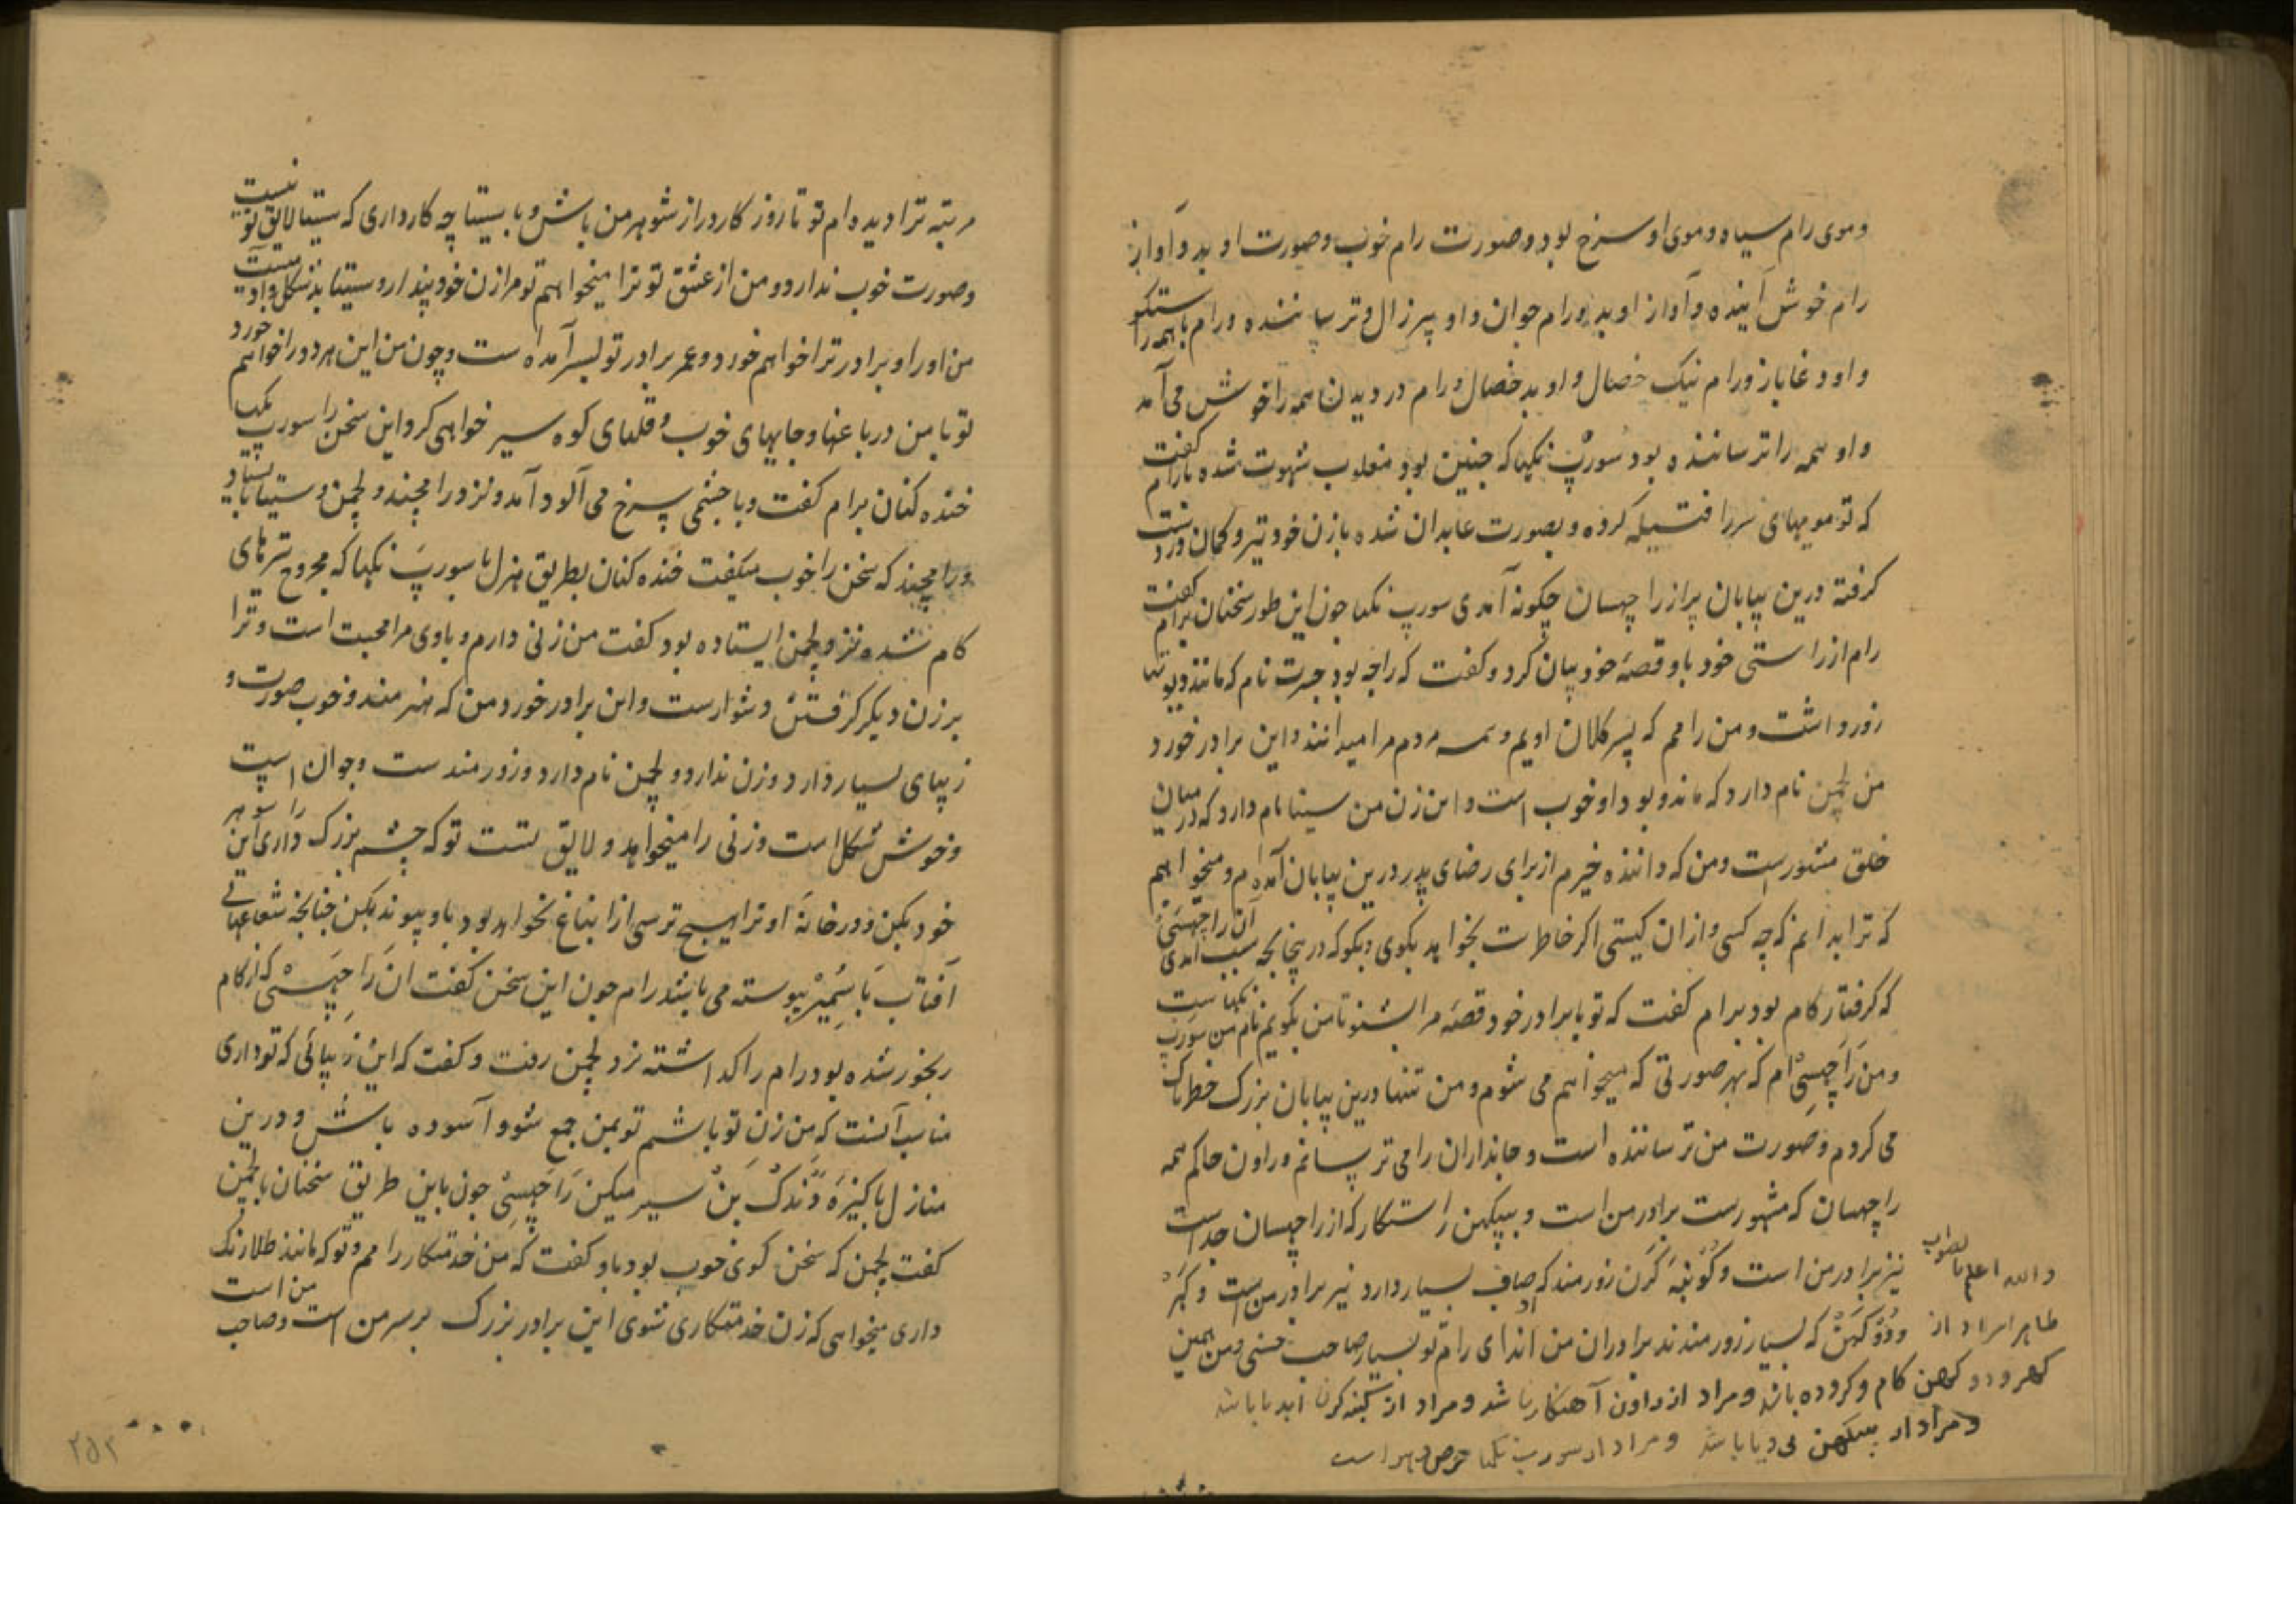 وموی رام سیاه وموی او سرخ بود وصورت رام خوب وصورت او بد وآواز
رام خوش آینده وآواز او بد ورام جوان واو پیرزال وترساننده ورام باهمه راستکو
واو دغاباز ورام نیک خصال واو بد خصال ورام در دیدن همه را خوش می آمد
واو همه را ترساننده بود سورپ نکها که چنین بود مغلوب شهوت شده بارام کفت
که تو مویهای سر را فتیله کرده وبصورت عابدان شده بازن خود تیر وکمان در دست
کرفته درین بیابان پر از راچهسان چکونه آمدی سورپ نکها چون این طور سخنان برام کفت
رام از راستی خود باو قصهٔ خود بیان کرد وکفت که راجه بود جسرت نام که مانند دیوتها
زور داشت ومن رامم که پسر کلان اویم وهمه مردم مرا میدانند واین برادر خورد
من لچمن نام دارد که مانند بود او خوب است واین زن من سیتا نام دارد که درمیان
خلق مشهورست ومن که داننده خیرم از برای رضای پدر درین بیابان آمده ام ومیخواهم
که ترا بدانم که چه کسی واز ان کیستی اکر خاطرت بخواهد بکوی وبکو که در ینجا بچه سبب آمدی آن راچهسنی
که کرفتار کام بود برام کفت که تو بابرادر خود قصهٔ مرا بشنو تا من بکویم نام من سورپ نکها ست
ومن راچهسی ام که بهر صورتی که میخواهم می شوم ومن تنها درین بیابان بزرک خطرناک
می کردم وصورت من ترساننده است وجانداران را می ترسانم وراون حاکم همه
راچهسان که مشهورست برادر من است وبپیکهن راستکار که از راچهسان جداست
نیز برادر من است وکونبه کرن زورمند که اوصاف بسیار دارد نیز برادر من است وکهر
ودوکهن که بسیار زورمندند برادران من اند ای رام تو بسیار صاحب حسنی ومن همین
والله اعلم بالصواب
ظاهرا مراد از
کهر ودوکهن کام وکروده باشد ومراد از راون آهنکار باشد ومراد از کنبه کرن ابدیا باشد
ومراد از ببیکهن بی دیا باشد ومراد از سورپ نکها حرص وهوا است
مرتبه ترا دیده ام تو تا روزکار دراز شوهر من باش وبا سیتا چه کار داری که سیتا لایق تو نیست
وصورت خوب ندارد ومن از عشق تو ترا میخواهم تو مرا زن خود پندار وسیتا بدشکل واو نیست
من او را وبرادر ترا خواهم خورد وعمر برادر تو بسر آمده است وچون من این هر دو را خواهم خورد
تو با من درباغها وجایهای خوب وقلهای کوه سیر خواهی کرد این سخن را سورپ نکها
خنده کنان برام کفت وبا چشمی سرخ می آلود آمد ونزد رامچند ولچمن وسیتا ایستاد
ورامچند که سخن را خوب میکفت خنده کنان بطریق هزل با سورپ نکها که مجروح تیرهای
کام شده نزد لچمن ایستاده بود کفت من زنی دارم وباوی مرا محبت است وترا
بر زن دیکر کرفتن دشوارست واین برادر خورد من که هنرمند وخوب صورت و
زیبای بسیار دارد وزن ندارد ولچمن نام دارد وزورمند ست وجوان است
وخوش شکل است وزنی را میخواهد ولایق تست تو که چشم بزرک داری این را شوهر
خود بکن ودر خانهٔ او ترا هیچ ترسی از انباغ نخواهد بود باو پیوند بکن چنانچه شعاعهای
آفتاب با سمیر پیوسته می باشد رام چون این سخن کفت ان راچهسنی که از کام
رنجور شده بود رام را کذاشته نزد لچمن رفت وکفت که این زیبائی که تو داری
مناسب آنست که من زن تو باشم تو بمن جمع شو وآسوده باش ودرین
منازل پاکیزه دندک بن سیر میکن راچهسی چون باین طریق سخنان بالچمن
کفت لچمن که سخن کوی خوب بود باو کفت که من خدمتکار رامم وتو که مانند طلا رنک
داری میخواهی که زن خدمتکاری شوی این برادر بزرک بر سر من است وصاحب من است
۲۵۲